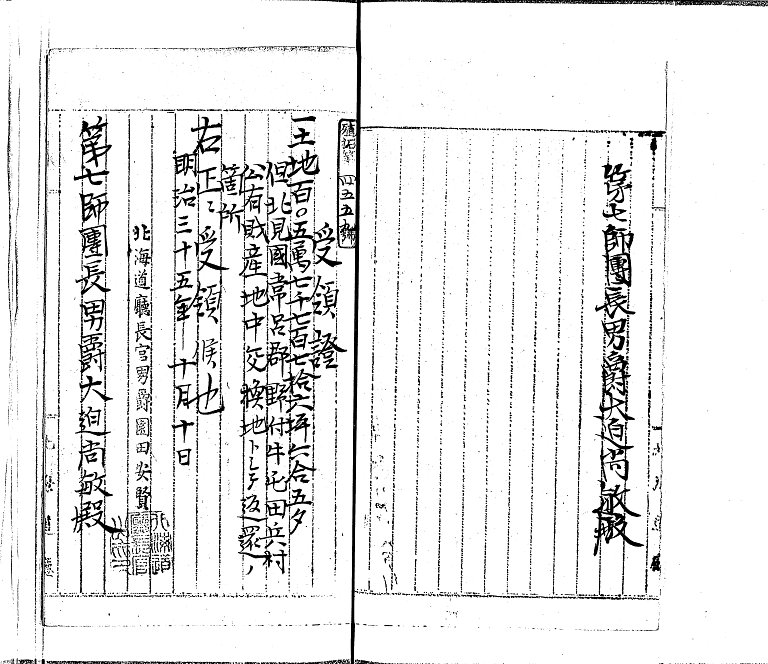 第七師團長男爵大迫尚敏殿
四五五號
受領證
一土地百〇五萬七千七百七拾六坪六合五夕
但北見國常呂郡野付牛屯田兵村
公有財産地中交換地トシテ返還ノ
箇所
右正ニ受領候也
明治三十五年十月十日
北海道廳長官男爵園田安賢
第七師團長男爵大迫尚敏殿